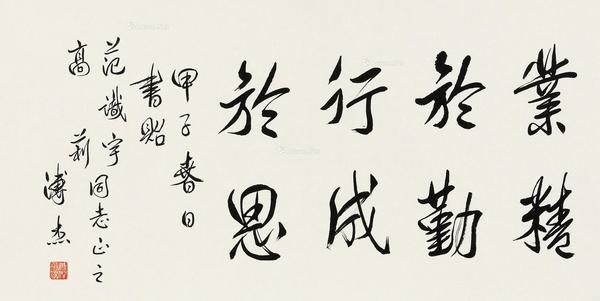 業精
於勤
行成
於思
甲子春日
書貽
范識宇同志正之
高莉
溥杰